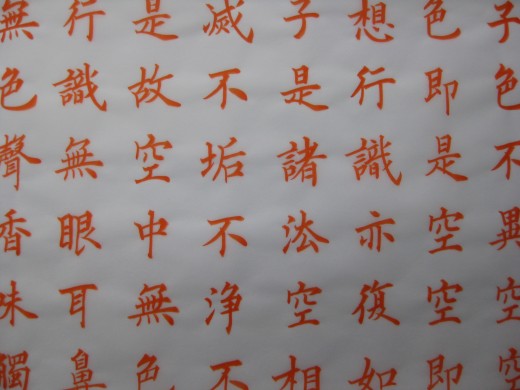 子色不異空空
色即是空空即
想行識亦復如
子是諸法空相
滅不垢不浄不
是故空中無色
行識無眼耳鼻
無色聲香味觸